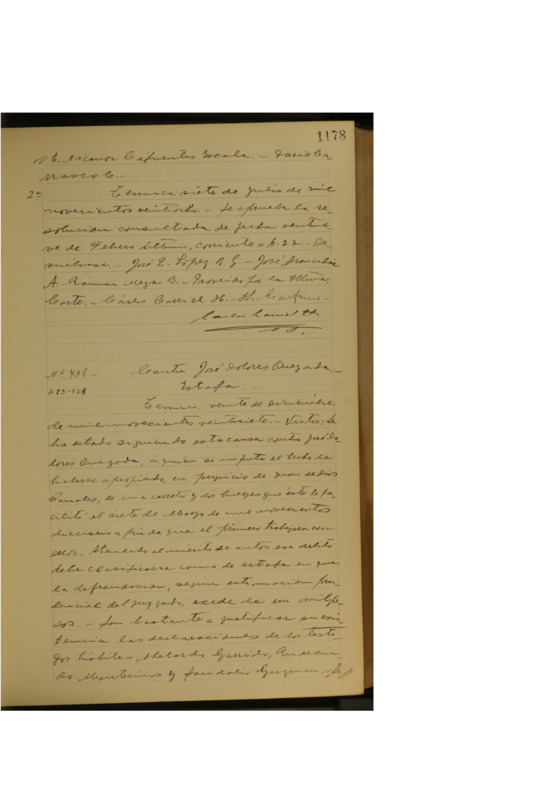 1178
N. Nicanor Cifuentes Escala. – Darío Ca
rrasco C. –
2ª Temuco, siete de Julio de mil
novecientos veintiocho. – Se aprueba la re-
solución consultada de fecha veintinue
ve de Febrero último, corriente a fs. 22. – De-
vuélvase. – José E. López R. G. – José Francisco
A. Ramón Meza B. – Proveído por la Iltma.
Corte. – Carlos Coronel H. – Conforme –
Nº 498. –
Contra José Dolores Quezada –
Estafa. –
Temuco, veinte de diciembre
de mil novecientos veintisiete. – Vistos: Se
ha estado siguiendo esta causa contra José Do
lores Quezada, a quien se imputa el hecho de
haberse apropiado, en perjuicio de Juan de Dios
Canales, de una carreta y dos bueyes que éste le fa
cilitó el siete de Mayo de mil novecientos
dieciseis a fin de que el primero trabajara con
ellos. – Atendido al mérito de autos ese delito
debe clasificarse como de estafa en que
la defraudación, según estimación pru-
dencial del juzgado, excede de un mil pe-
sos. – Son bastante a justificar su exis
tencia las declaraciones de los testi-
gos hábiles Abelardo Garrido, Rudecin-
do Montecinos y Sandalio Guzmán. –